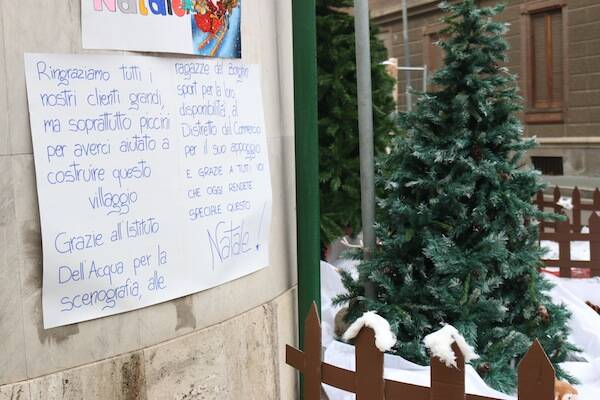 Natale
Ringraziamo tutti i
nostri clienti grandi,
ma soprattutto piccini
per averci aiutato a
costruire questo
villaggio
Grazie all'Istituto
Dell'Acqua per la
scenografia, alle
ragazze del Borghi
sport per la loro
disponibilità, al
Distretto del Commercio
per il suo appoggio
E GRAZIE A TUTTI VOI
CHE OGGI RENDETE
SPECIALE QUESTO
Natale!